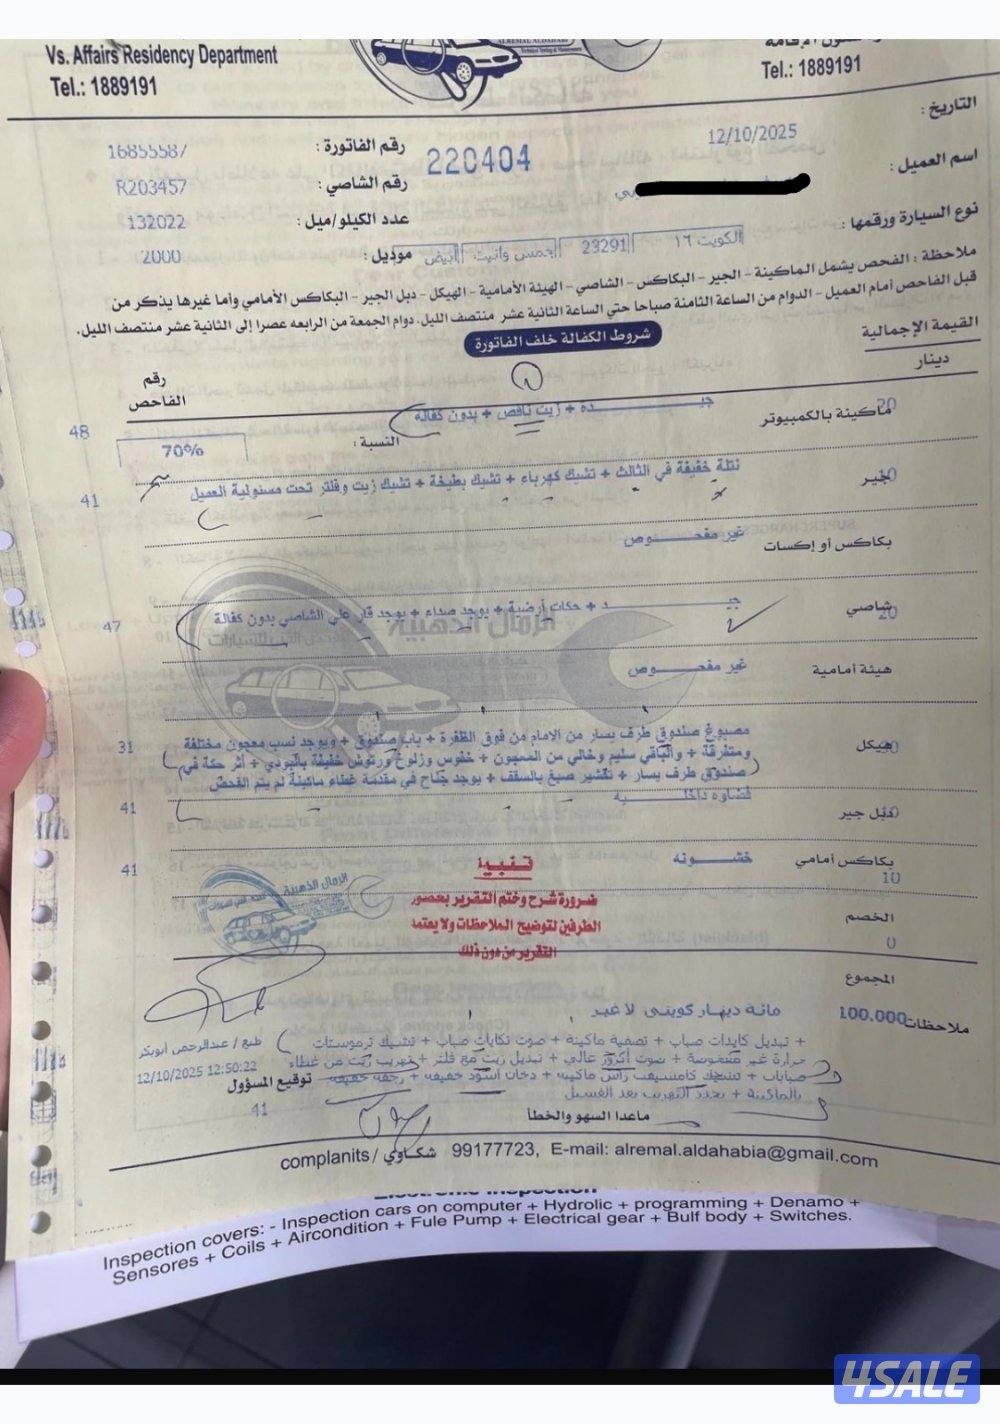 Vs. Affairs Residency Department
Tel.: 1889191
ALREMAL ALDAHABI
Tel.: 1889191
التاريخ :
12/10/2025
رقم الفاتورة :
16855587
220404
اسم العميل :
رقم الشاصي :
R203457
نوع السيارة ورقمها :
الكويت ١٦
23291
جمس وانيت
ابيض
عدد الكيلو/ميل :
132022
موديل :
2000
ملاحظة : الفحص يشمل الماكينة - الجير - البكاكس - الشاصي - الهيئة الأمامية - الهيكل - دبل الجير - البكاكس الأمامي وأما غيرها يذكر من
قبل الفاحص أمام العميل - الدوام من الساعة الثامنة صباحا حتي الساعة الثانية عشر منتصف الليل. دوام الجمعة من الرابعه عصرا إلى الثانية عشر منتصف الليل.
شروط الكفالة خلف الفاتورة
القيمة الإجمالية
دينار
رقم الفاحص
ماكينة بالكمبيوتر
20
جيـــــده + زيت ناقص + بدون كفالة
48
النسبة :
70%
جير
نتلة خفيفة في الثالث + تشيك كهرباء + تشيك بطيخة + تشيك زيت وفلتر تحت مسئولية العميل
41
بكاكس أو إكسات
غير مفحـــوص
شاصي
20
جيـــــد + حكات أرضية + يوجد صداء + يوجد قار علي الشاصي بدون كفالة
47
الرمال الذهبية
هيئة أمامية
غير مفحـــوص
هيكل
مصبوغ صندوق طرف يسار من الامام من فوق الظفرة + باب صندوق + ويوجد نسب معجون مختلفة
ومتفرقة + والباقي سليم وخالي من المعجون + خفوس وزلوخ ورتوش خفيفة بالبودي + أثر حكة في
صندوق طرف يسار + تقشير صبغ بالسقف + يوجد جناح في مقدمة غطاء ماكينة لم يتم الفحص
31
دبل جير
قضاوه داخلـــية
41
بكاكس أمامي
10
خشـــونه
41
تنبيه
ضرورة شرح وختم التقرير بحضور
الطرفين لتوضيح الملاحظات ولا يعتمد
التقرير من دون ذلك
الرمال الذهبية
الخصم
0
المجموع
100.000
مائة دينار كويتى لا غير
ملاحظات
+ تبديل كايدات صباب + تصفية ماكينة + صوت تكايات صباب + تشيك ترموستات
حرارة غير مفحوصة + صوت أكزوز عالي + تبديل زيت مع فلتر + تهريب زيت من غطاء
صبابات + تشيك كامسيفت راس ماكينة + دخان اسود خفيفه + رجفه خفيفه
بالماكينة + يحدد التهريب بعد الغسيل
طبع / عبدالرحمن أبوبكر
12/10/2025 12:50:22
توقيع المسؤول
41
ماعدا السهو والخطأ
complanits / شكاوي 99177723, E-mail: alremal.aldahabia@gmail.com
Inspection covers: - Inspection cars on computer + Hydrolic + programming + Denamo +
Sensores + Coils + Aircondition + Fule Pump + Electrical gear + Bulf body + Switches.
4SALE